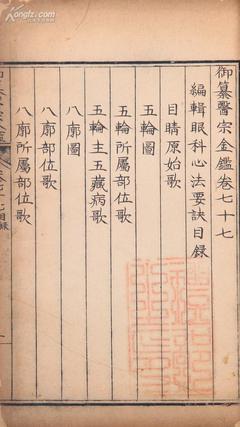 御纂醫宗金鑑卷七十七
編輯眼科心法要訣目錄
目睛原始歌
五輪圖
五輪所屬部位歌
五輪主五藏病歌
八廓圖
八廓部位歌
八廓所屬部位歌
卷七十七目錄